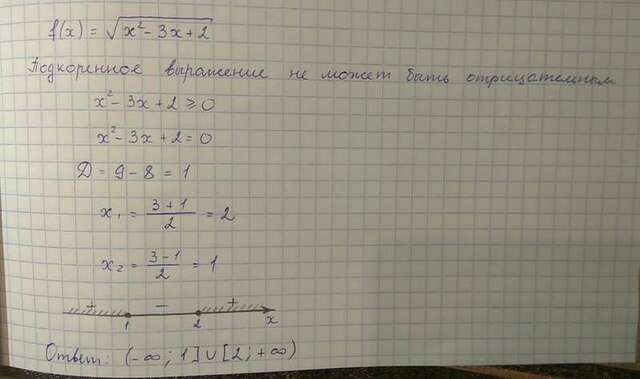 f(x) = √(x² - 3x + 2)
Подкоренное выражение не может быть отрицательным
x² - 3x + 2 ≥ 0
x² - 3x + 2 = 0
Д = 9 - 8 = 1
x₁ = (3 + 1)/2 = 2
x₂ = (3 - 1)/2 = 1
+ − +
1 2 x
Ответ: (-∞; 1] ∪ [2; +∞)